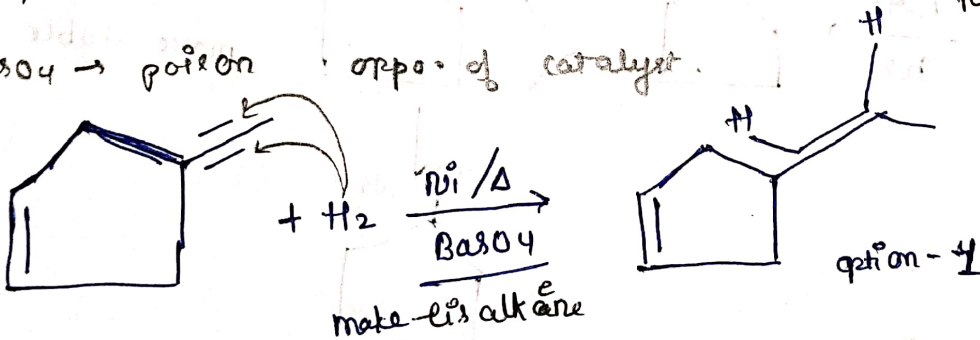 SO4 → poison oppo. of catalyst.
H
H
+ H2 Ni /Δ
BaSO4
option - 4
make cis alkene